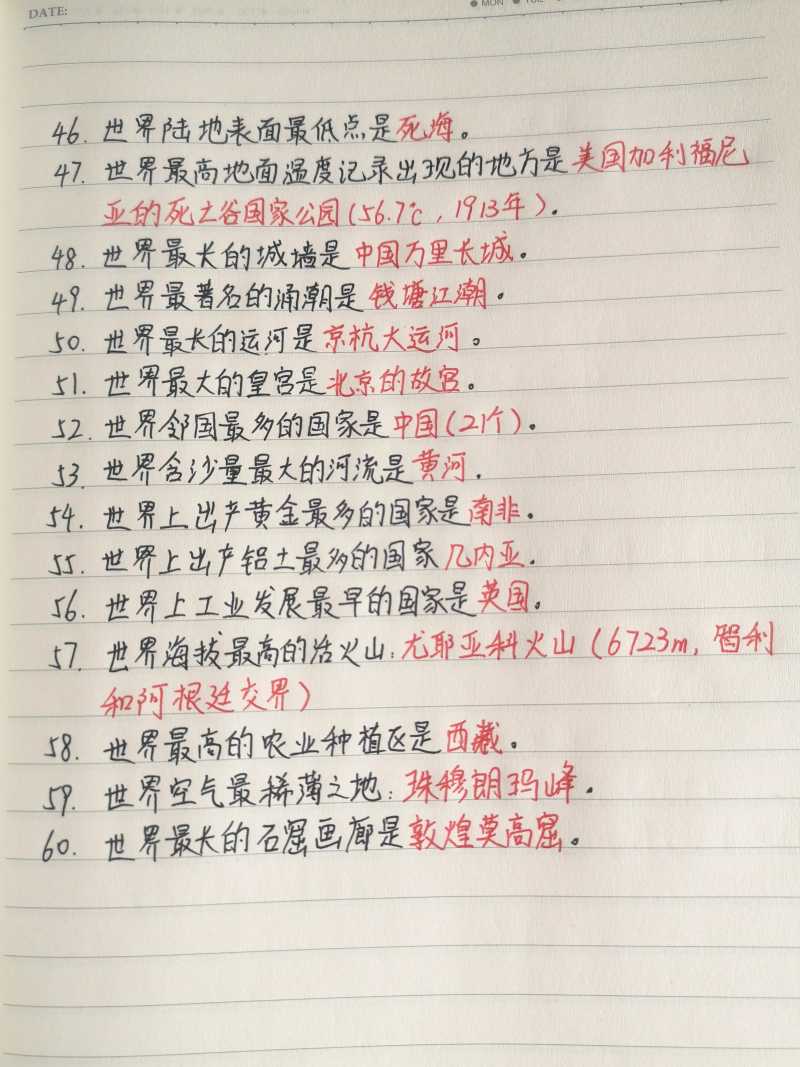 DATE:
MON TUE
46. 世界陆地表面最低点是死海。
47. 世界最高地面温度记录出现的地方是美国加利福尼
亚的死之谷国家公园(56.7℃,1913年).
48. 世界最长的城墙是中国万里长城.
49. 世界最著名的涌潮是钱塘江潮.
50. 世界最长的运河是京杭大运河。
51. 世界最大的皇宫是北京的故宫。
52. 世界邻国最多的国家是中国(21个).
53. 世界含沙量最大的河流是黄河.
54. 世界上出产黄金最多的国家是南非.
55. 世界上出产铝土最多的国家几内亚.
56. 世界上工业发展最早的国家是英国。
57. 世界海拔最高的活火山:尤耶亚科火山(6723m,智利
和阿根廷交界)
58. 世界最高的农业种植区是西藏。
59. 世界空气最稀薄之地:珠穆朗玛峰.
60. 世界最长的石窟画廊是敦煌莫高窟。